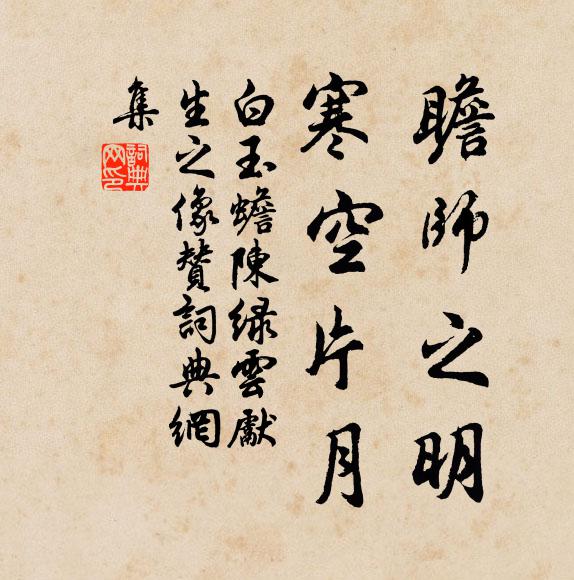 瞻師之明
寒空片月
白玉蟾陳綠雲獻
生之像贊詞典網
集
詞典網印